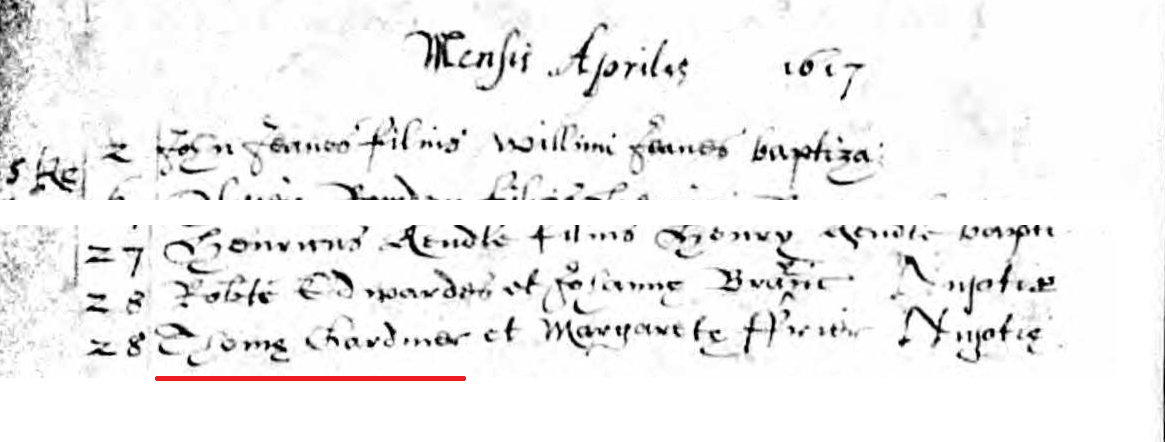 Mensis Aprilis 1617
2 John Jeanes filius Willimi Jeanes baptiza:
27 Henricus Rendle filius Henry Rendle bapti
28 Robte Edwardes et Johanne Nuptiæ
28 Thomę Gardner et Margaretę Nuptię